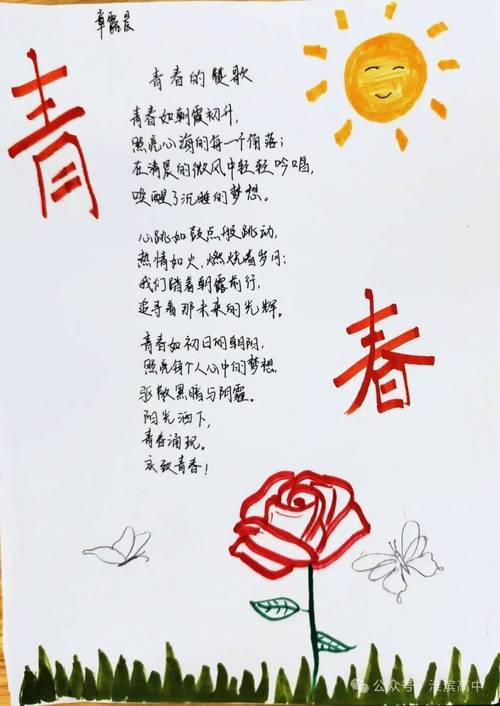 章露晨
青春
青春的赞歌
青春如朝霞初升,
照亮心海的每一个角落;
在清晨的微风中轻轻吟唱,
唤醒了沉睡的梦想。
心跳如鼓点般跳动,
热情如火,燃烧着岁月;
我们踏着朝露前行,
追寻着那未来的光辉。
青春如初日的朝阳,
照亮每个人心中的梦想。
驱散黑暗与阴霾。
阳光洒下,
青春涌现。
永致青春!
公众号·淮滨高中